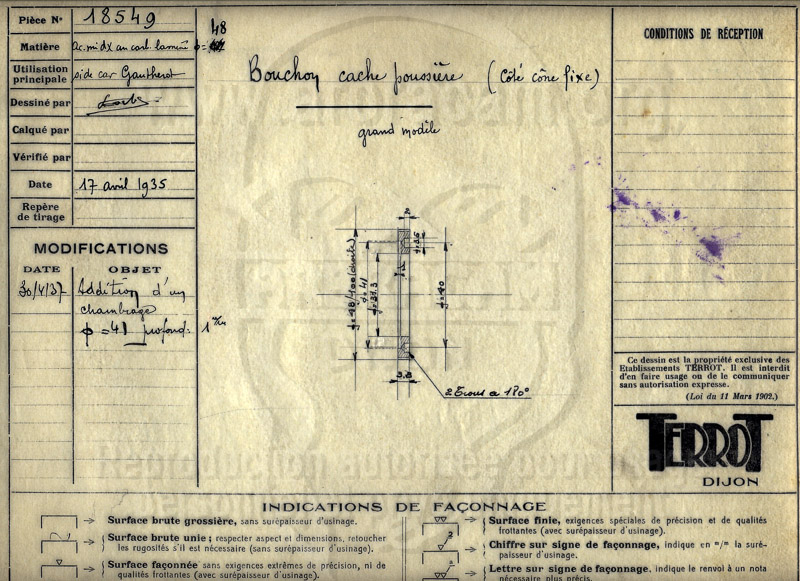 Pièce N° 18549
Matière Ac. mi dx au carb. laminé φ = 48
Utilisation principale side car Gautherot
Dessiné par
Calqué par
Vérifié par
Date 17 avril 1935
Repère de tirage
MODIFICATIONS
DATE OBJET
30/4/37 Addition d'un
chambrage
φ = 41 profond: 1 m/m
Bouchon cache poussière (Côté cône fixe)
grand modèle
2
φ=3.5
φ=41
φ=37.3
φ=40
3.8
2 Trous à 180°
CONDITIONS DE RÉCEPTION
Ce dessin est la propriété exclusive des
Etablissements TERROT. Il est interdit
d'en faire usage ou de le communiquer
sans autorisation expresse.
(Loi du 11 Mars 1902.)
TERROT
DIJON
INDICATIONS DE FAÇONNAGE
Surface brute grossière, sans surépaisseur d'usinage.
Surface brute unie; respecter aspect et dimensions, retoucher
les rugosités s'il est nécessaire (sans surépaisseur d'usinage).
Surface façonnée sans exigences extrêmes de précision, ni de
qualités frottantes (avec surépaisseur d'usinage).
Surface finie, exigences spéciales de précision et de qualités
frottantes (avec surépaisseur d'usinage).
2
Chiffre sur signe de façonnage, indique en m/m la suré-
paisseur d'usinage.
a
Lettre sur signe de façonnage, indique le renvoi à un nota
nécessaire plus précis.